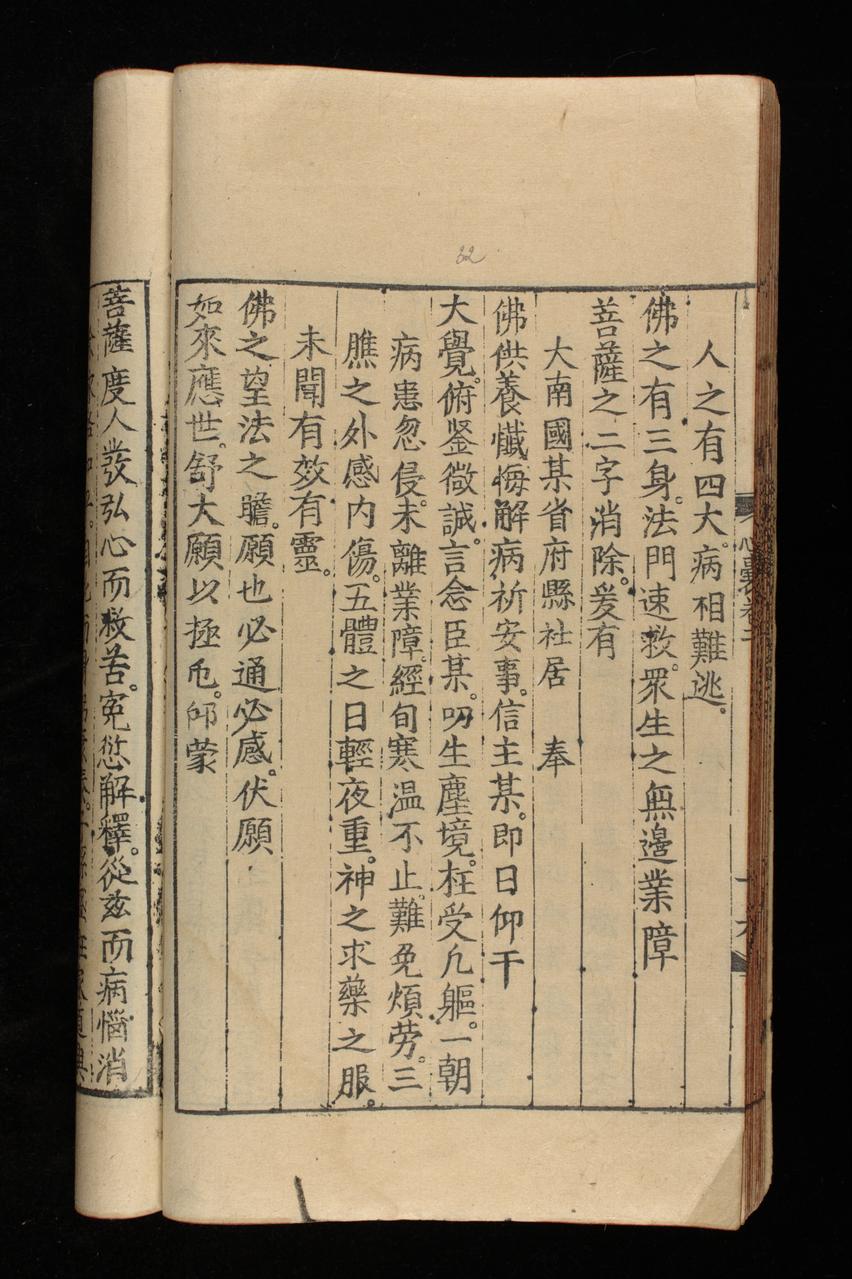 82
人之有四大。病相難逃。
佛之有三身。法門速救。眾生之無邊業障
菩薩之二字消除。爰有
大南國某省府縣社居 奉
佛供養懺悔解病祈安事。信主某。即日仰干
大覺。俯鉴微誠。言念臣某。叨生塵境。枉受凢軀。一朝
病患忽侵。未離業障。經旬寒温不止。難免煩劳。三
膲之外感内傷。五體之日輕夜重。神之求藥之服。
未聞有效有靈。
佛之望法之瞻。願也必通必感。伏願
如來應世。舒大願以拯危。卬蒙
菩薩度人。發弘心而救苦。冤愆解釋。從兹而病惱消
心囊卷二